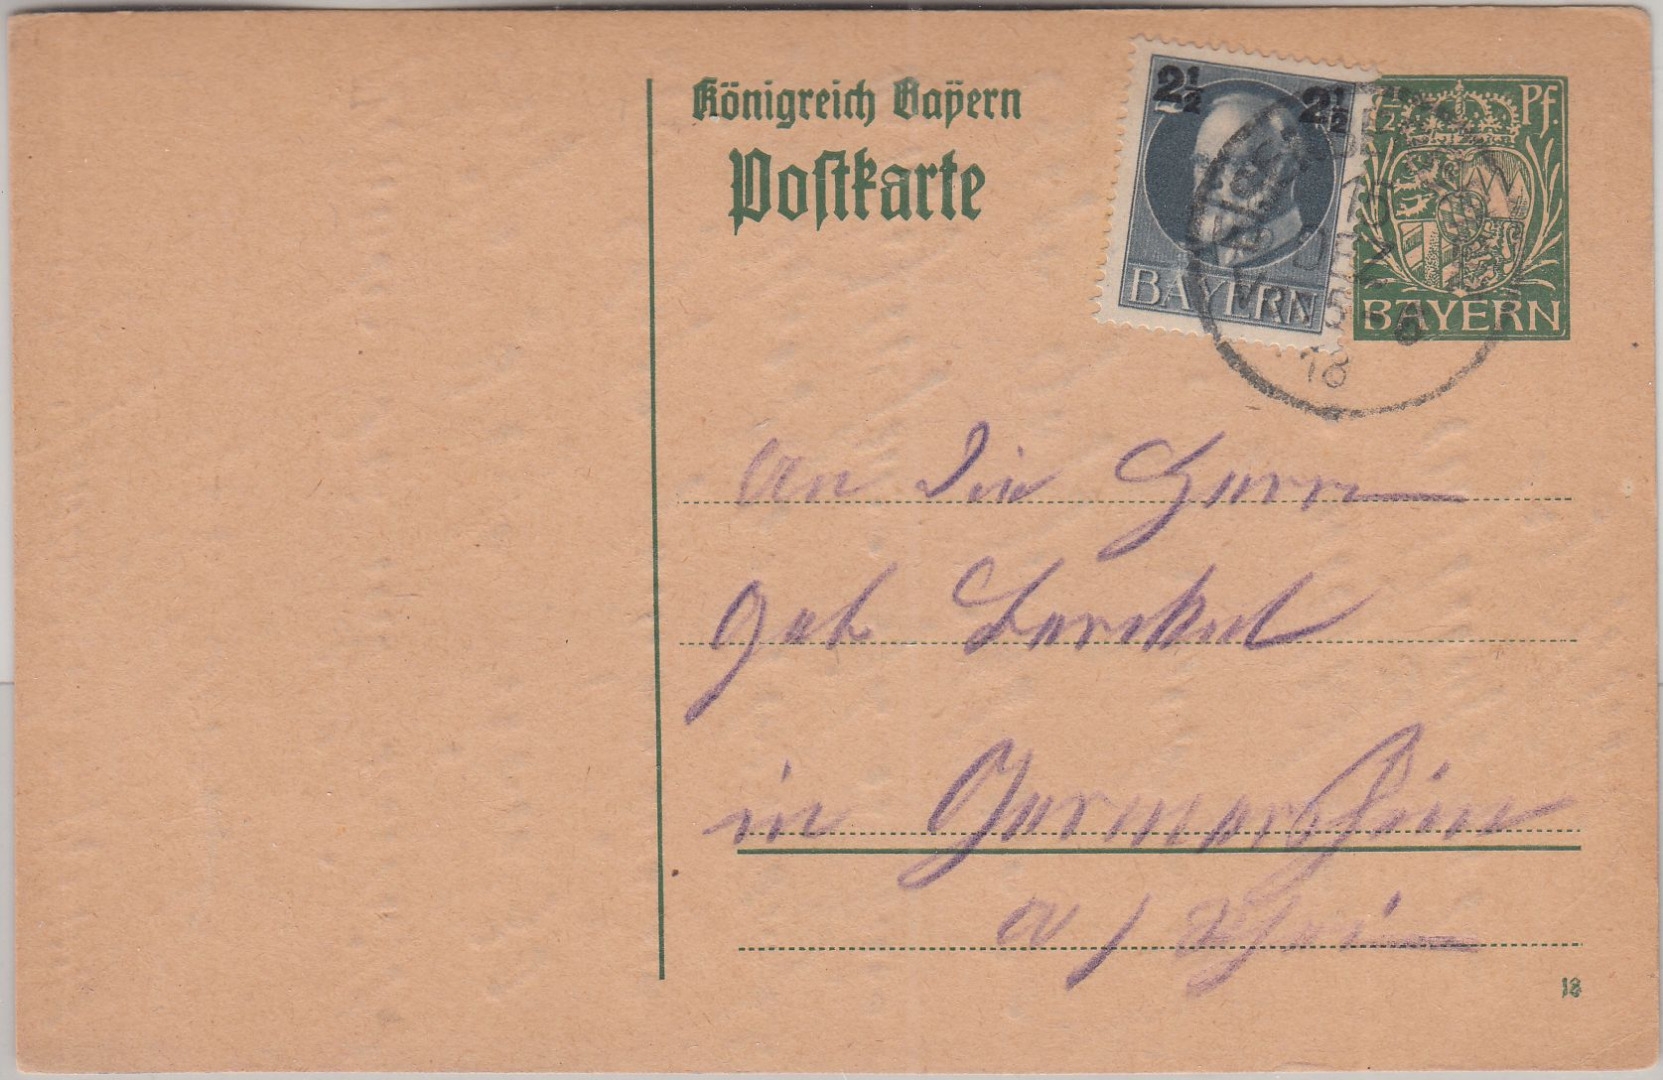 Königreich Bayern
Postkarte
2½ 2½
BAYERN
7½ Pf.
BAYERN
18
An die Herrn
Geb
in Germersheim
a/Rhein
18